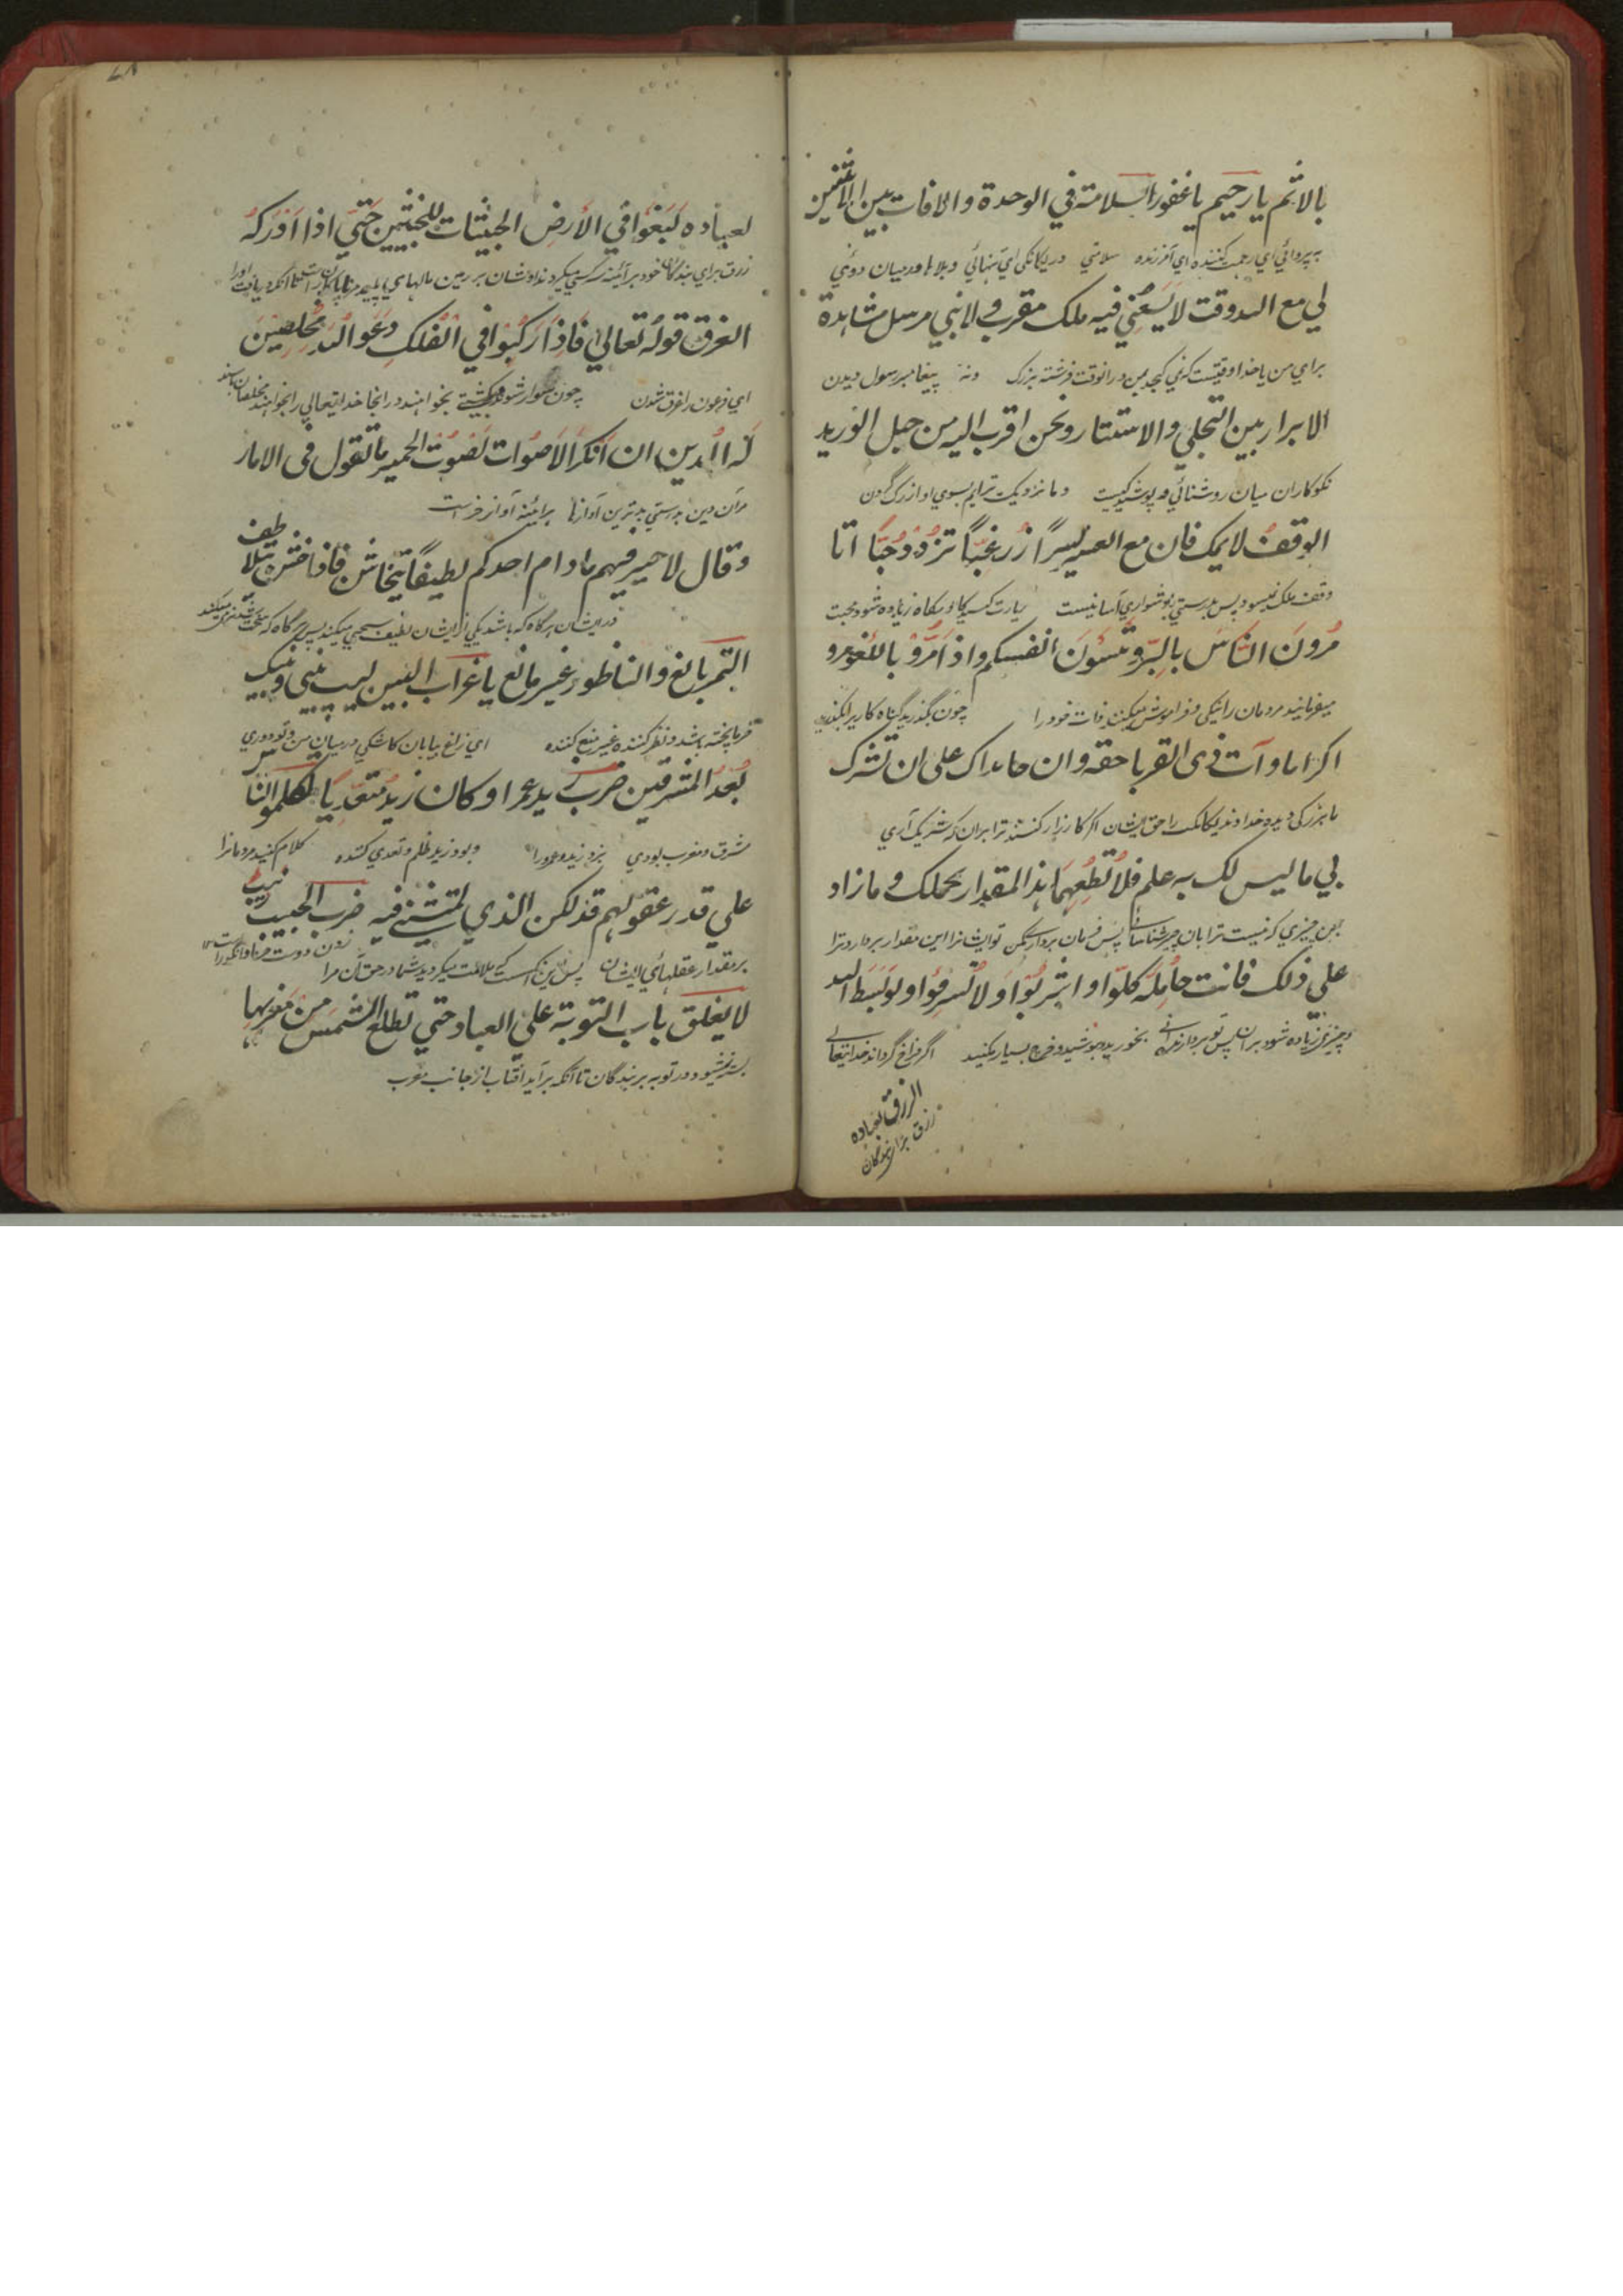 بالاثم يا رحيم يا غفور السلامة في الوحدة والافات بين الاثنين
اي رحمت كننده اي آمرزنده سلامتي در يكانكي اي تنهائي و بلاها درميان دوئي
لي مع الله وقت لا يَسَعُنِي فيه ملك مقرب ولا نبي مرسل مشاهدة
براي من با خدا وقتيست كه نمي كنجد بمن درانوقت فرشته بزرك ونه پيغامبر رسول ديدن
الابرار بين التجلي والاستتار ونحن اقرب اليه من حبل الوريد
نكوكاران ميان روشنائي و پوشيدكيست و ما نزديكتريم بسوي او از رك كردن
الوقفُ لا يملك فان مع العسر يُسرًا زُر غِبًّا تزدد حُبًّا اتا
وقف ملك نميشود پس بدرستي بدشواري آسانيست زيارت كن كاه كاه زياده شود محبت
مُرُونَ النَّاسَ بِالبِرِّ وَتَنسَونَ انفسكم واذا مَرُّوْا باللغو مرو
ميفرمائيد مردمان را نيكي و فراموش ميكنيد ذات خود را چون بكذريد
اكراما وآت ذي القربا حقه وان جاهداك على ان تشرك
ما بزركي ديده خداوند يكانكت را حق ايشان اكر كارزار كنند ترا بران كه شريك آري
بي ما ليس لك به علم فلا تُطِعْهُمَا هذا المقدار يحملك وما زاد
بمن چيزي كه نيست ترا بان چيز شناسائي پس فرمان برداري مكن تو ايشانرا اين مقدار بردارد ترا
علي ذلك فانت حامله كلوا واشربُوا وَلا تُسرِفُوا ولو بَسَطَ الله
و چيزي زياده شود بران پس تو بردارنده آني بخوريد و بنوشيد و خرج بسيار مكنيد اكر فراخ كرداند خدايتعالي
الرزق لعباده
رزق براي بندكان
لعباده لَبَغَوْا في الأرض الخبيثات للخبيثين حَتّي اذا اَدْرَكَهُ
رزق براي بندكان خود هر آئينه سركشي ميكردند اوشان بر زمين
الغرق قوله تعالي فَاِذَا رَكِبُوْا فِي الْفُلْكِ دَعَوا اللهَ مُخْلِصِيْنَ
اي فرعون را غرق شدن چون سوار شوند بكشتي بخوانند در انجا خدايتعالي را
لَهُ الدين ان اَنكَرَ الأَصْوَات لَصَوْتُ الحمير ما تقول في الامار
مر آن دين بدرستي بدترين آوازها هر آئينه آواز خر است
وقال لا خير فيهم مادام احدكم لطيفًا يتخاشن فاذا خشن يتلاطف
در ايشان هركاه كه باشد يكي از ايشان لطيف سختي ميكند پس هركاه كه سخت شد نرمي ميكند
التمر يانع والناظور غير مانع يا غراب البين ليت بيني وبينك
خرما پخته باشد و نظر كننده غير منع كننده اي زاغ بيابان كاشكي درميان من و تو دوري
بُعْدُ المشرقين ضرب زيد عمرا وكان زيد مُتَعَدِّيًا كلموا الناس
مشرق و مغرب بودي بزد زيد عمرو را و بود زيد ظلم و تعدي كننده كلام كنيد مردمانرا
علي قدر عقولهم فذلكن الذي لمتنني فيه ضرب الحبيب زبيب
بر مقدار عقلهاي ايشان پس اين كس است كه ملامت ميكرديد شما در حق آن مرا زدن دوست
لا يغلق باب التوبة علي العباد حتي تطلع الشمس من مغربها
بسته نميشود در توبه بر بندكان تا آنكه بر آيد افتاب از جانب مغرب